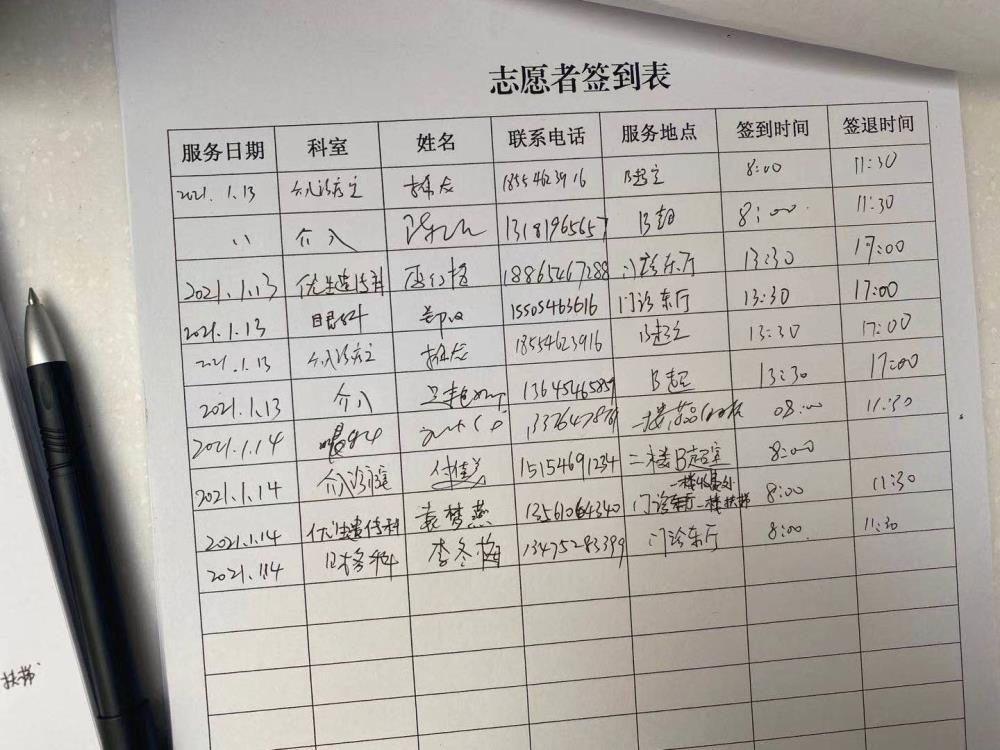 志愿者签到表
服务日期 科室 姓名 联系电话 服务地点 签到时间 签退时间
2021.1.13 介入诊疗室 18554623916 B超室 8:00 11:30
介入 13181965657 B超 8:00 11:30
2021.1.13 优生遗传科 18865467288 门诊东厅 13:30 17:00
2021.1.13 眼科 15505463616 门诊东厅 13:30 17:00
2021.1.13 介入诊疗室 18554623916 B超室 13:30 17:00
2021.1.13 介入 13645465859 B超 13:30 17:00
2021.1.14 眼科 一楼 08:00 11:30
2021.1.14 介入诊疗室 付佳美 15154691234 二楼B超室 8:00
2021.1.14 优生遗传科 袁梦燕 13561064340 门诊 一楼收费处 一楼扶梯 8:00 11:30
2021.1.14 医务科 李冬梅 13475283399 门诊东厅 8:00 11:30
扶梯